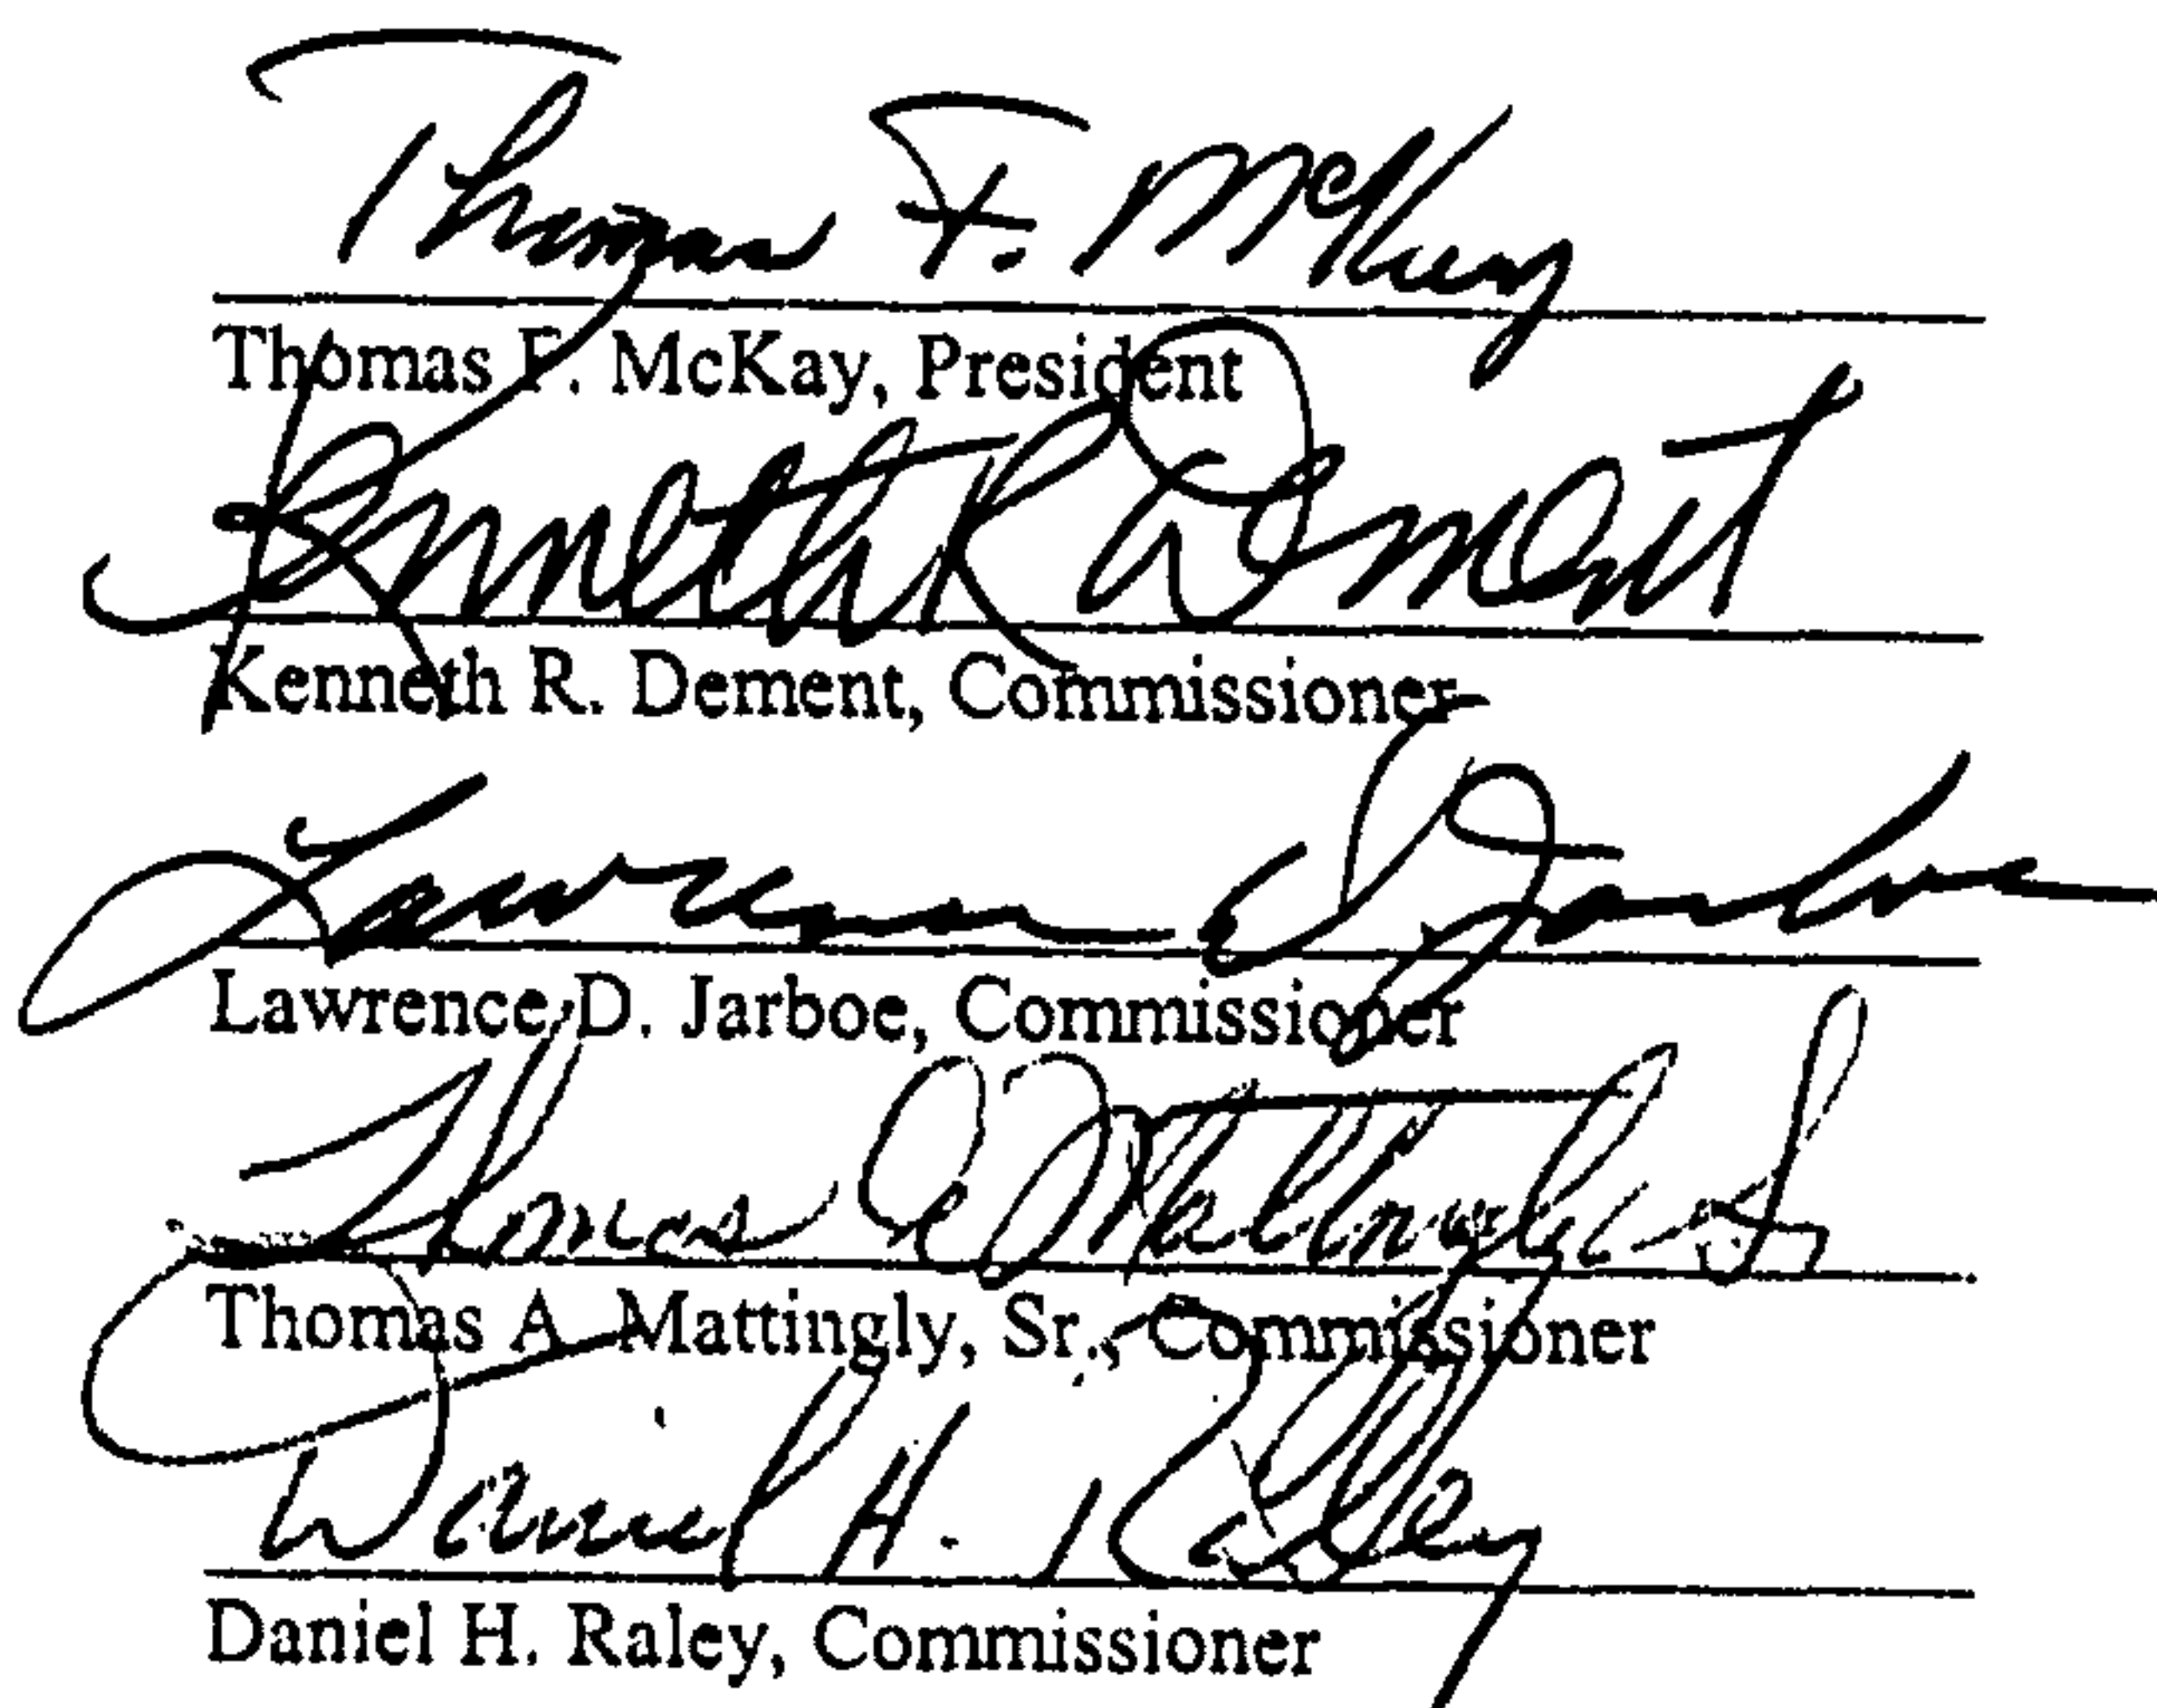 Thomas F. McKay
Thomas F. McKay, President
Kenneth R Dement
Kenneth R. Dement, Commissioner
Lawrence D Jarboe
Lawrence D. Jarboe, Commissioner
Thomas A Mattingly Sr
Thomas A. Mattingly, Sr., Commissioner
Daniel H. Raley
Daniel H. Raley, Commissioner